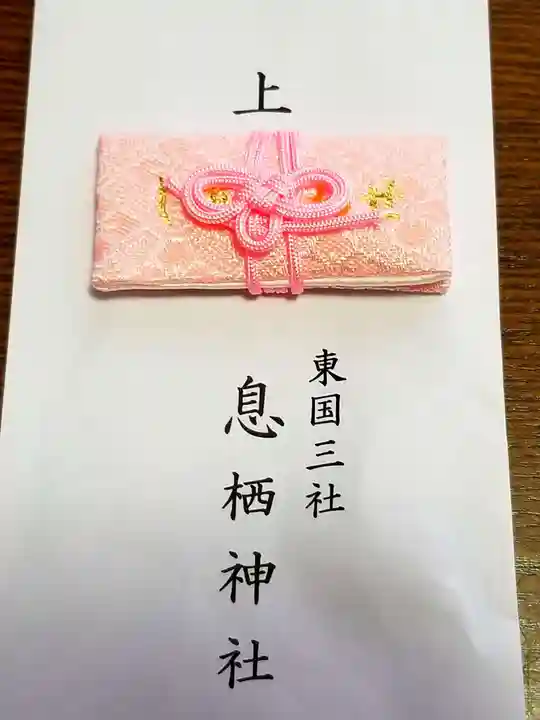 上
東国三社
息栖神社